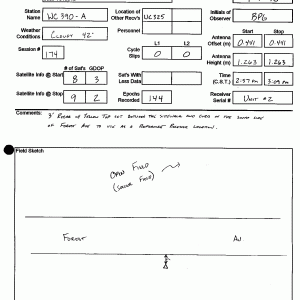 Station Name WC390-A
Location of Other Recv's UC325
Initials of Observer BPG
Weather Conditions Cloudy 42°
Personnel
Start Stop
Antenna Offset (m) 0.441 0.441
Session # 174
L1 L2
Cycle Slips 0 0
Antenna Height (m) 1.263 1.263
# of Sats GDOP
Satellite Info @ Start 8 3
Sat's With Less Data
Time (C.S.T.) 2:57 PM 3:09 PM
Satellite Info @ Stop 9 2
Epochs Recorded 144
Receiver Serial # Unit #2
Comments: 3/8" Rebar w/ Yellow Cap set between the sidewalk and curb on the south side
of Forest Ave to use as a
Field Sketch
Open Field
(Soccer Field)
Forest Av